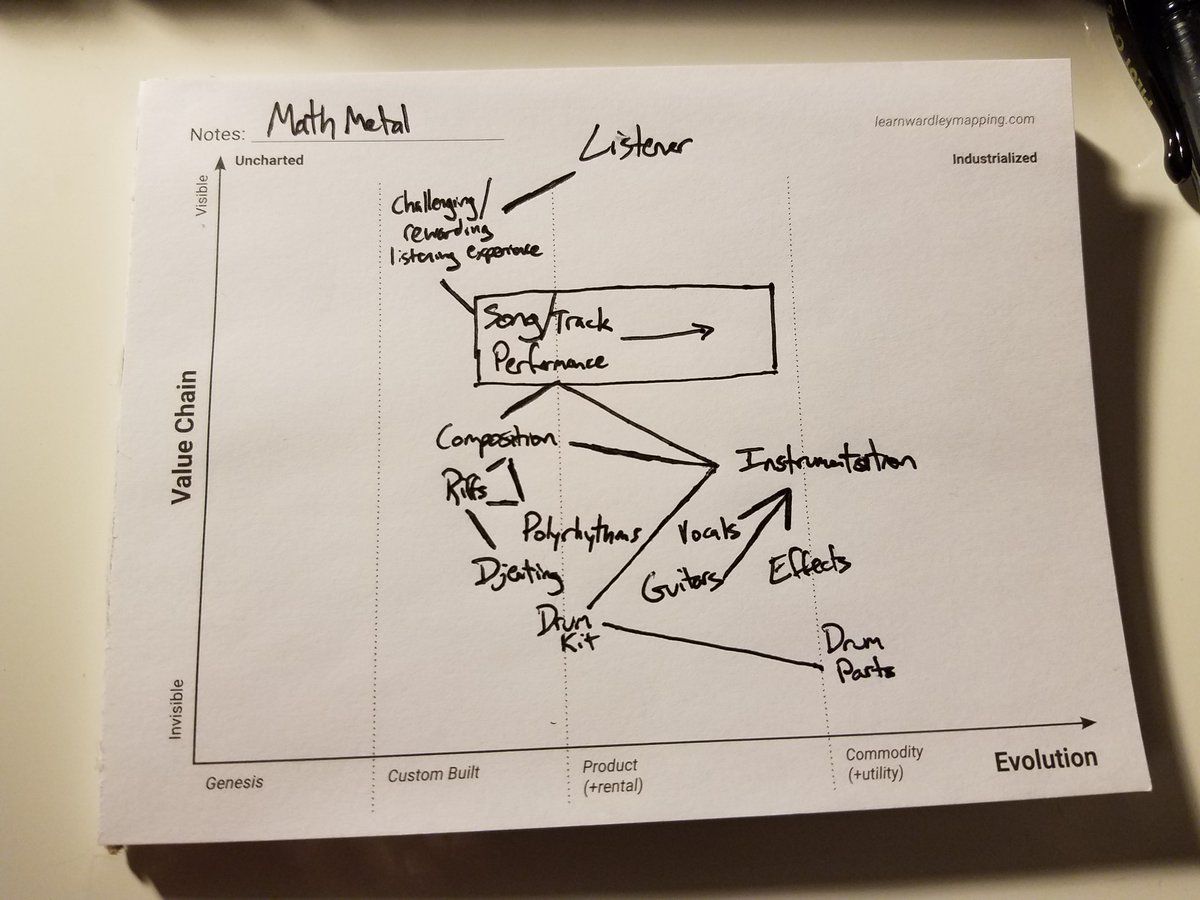 Notes: Math Metal
learnwardleymapping.com
Uncharted
Industrialized
Visible
Value Chain
Invisible
Listener
Challenging/
rewarding
listening experience
Song/Track
Performance
Composition
Instrumentation
Riffs
Polyrhythms
Vocals
Djenting
Guitars
Effects
Drum
Kit
Drum
Parts
Genesis
Custom Built
Product
(+rental)
Commodity
(+utility)
Evolution